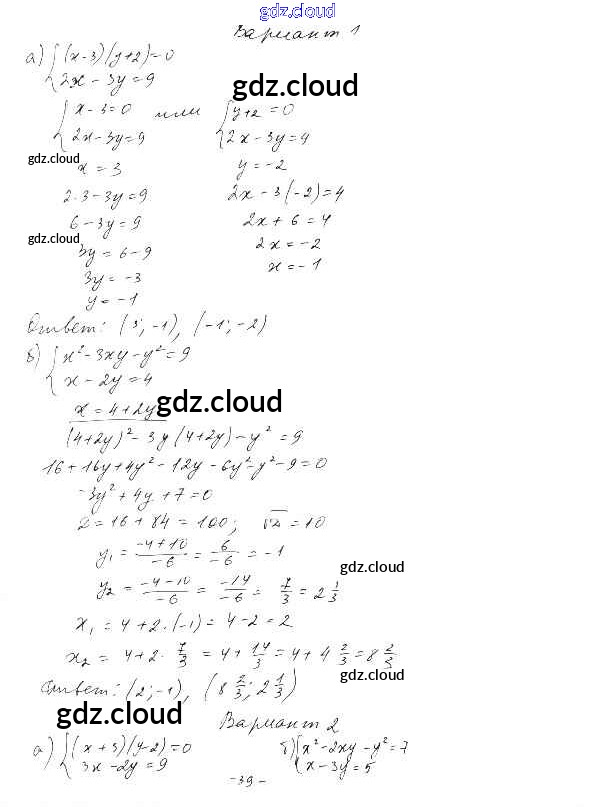 gdz.cloud
Вариант 1
а) { (x-3)(y+2)=0
2x - 3y = 9
gdz.cloud
{ x-3=0 или { y+2=0
2x-3y=9 2x-3y=4
gdz.cloud
x = 3 y = -2
2·3-3y=9 2x-3(-2)=4
6-3y=9 2x+6=4
gdz.cloud
3y = 6-9 2x = -2
3y = -3 x = -1
y = -1
Ответ: (3; -1), (-1; -2)
б) { x²-3xy-y²=9
x-2y=4
x = 4+2y
gdz.cloud
(4+2y)²-3y(4+2y)-y²=9
16+16y+4y²-12y-6y²-y²-9=0
-3y²+4y+7=0
D=16+84=100; √D=10
y₁ = (-4+10)/(-6) = 6/(-6) = -1
gdz.cloud
y₂ = (-4-10)/(-6) = (-14)/(-6) = 7/3 = 2 1/3
x₁ = 4+2·(-1) = 4-2 = 2
x₂ = 4+2·7/3 = 4+14/3 = 4+4 2/3 = 8 2/3
gdz.cloud
Ответ: (2; -1), (8 2/3; 2 1/3)
gdz.cloud
Вариант 2
а) { (x+3)(y-2)=0 б) { x²-2xy-y²=7
3x-2y=9 x-3y=5
-39-